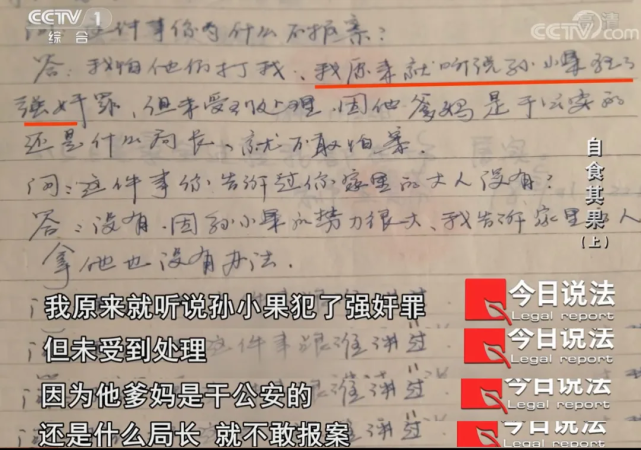 CCTV 1
综合
CCTV.com
高清
问:这件事你为什么不报案?
答:我怕他们打我、我原来就听说孙小果犯了
强奸罪,但未受到处理,因他爹妈是干公安的
还是什么局长、就不敢报案.
问:这件事你告诉过你家里的大人没有?
答:没有.因孙小果的势力很大、我告诉家里的人
拿他也没有办法.
自食其果(上)
我原来就听说孙小果犯了强奸罪
但未受到处理
因为他爹妈是干公安的
还是什么局长 就不敢报案
今日说法
Legal report
今日说法
Legal report
今日说法
Legal report
今日说法
Legal report